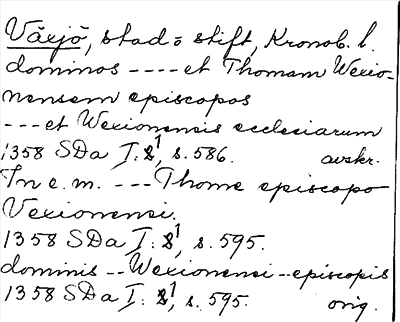 Växjö, stad o stift, Kronob. l.
dominos ---- et Thomam Wexio-
nensem episcopos
--- et Wexionensis ecclesiarum
1358 SDa I: 1, s. 586. avskr.
In e. m. --- Thome episcopo
Vexionensi.
1358 SDa I: 1, s. 595.
dominis -- Wexionensi -- episcopis
1358 SDa I: 1, s. 595. orig.